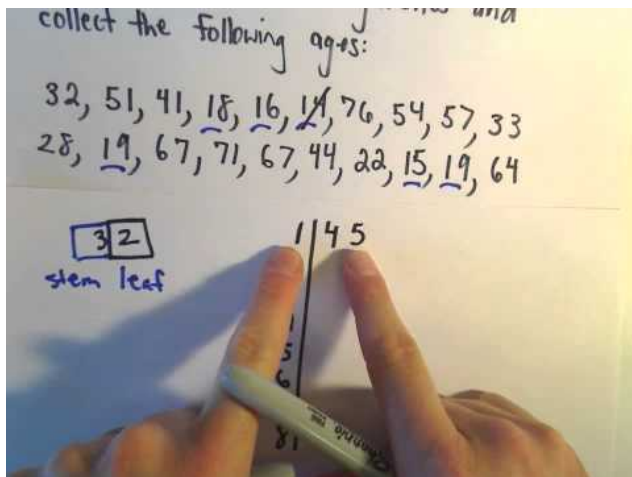 collect the following ages:
32, 51, 41, 18, 16, 14, 76, 54, 57, 33
28, 19, 67, 71, 67, 44, 22, 15, 19, 64
3 2
stem leaf
1 | 4 5
5
6
8
Sharpie